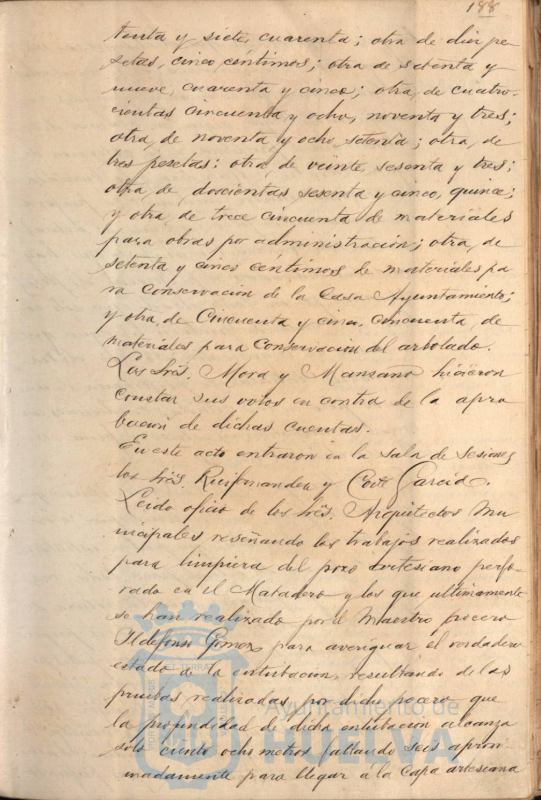 188
tenta y siete, cuarenta; otra de diez pe-
setas, cinco céntimos; otra de setenta y
nueve, cuarenta y cinco; otra, de cuatro-
cientas cincuenta y ocho, noventa y tres;
otra, de noventa y ocho, setenta; otra, de
tres pesetas: otra, de veinte, sesenta y tres;
otra de, doscientas sesenta y cinco, quince;
y otra, de trece cincuenta de materiales
para obras por administración; otra, de
setenta y cinco céntimos de materiales pa
ra conservacion de la Casa Ayuntamiento;
y otra, de Cincuenta y cinco, cincuenta, de
materiales para Conservacion del arbolado.
Los Srs. Mora y Manzano hicieron
constar sus votos en contra de la apro
bacion de dichas cuentas.
En este acto entraron en la sala de sesiones
los Srs. Ruifernandez y Corte Garcia.
Leido oficio de los Srs. Arquitectos Mu
nicipales reseñando los trabajos realizados
para limpieza del pozo artesiano perfo-
rado en el Matadero y los que ultimamente
se han realizado por el Maestro pocero
Ildefonso Gomez para averiguar el verdadero
estado de la entubacion, resultando de las
pruebas realizadas por dicho pocero que
la profundidad de dicha entubacion alcanza
solo ciento ocho metros faltando seis aproxi-
madamente para llegar á la capa artesiana
Ayuntamiento de
HUELVA